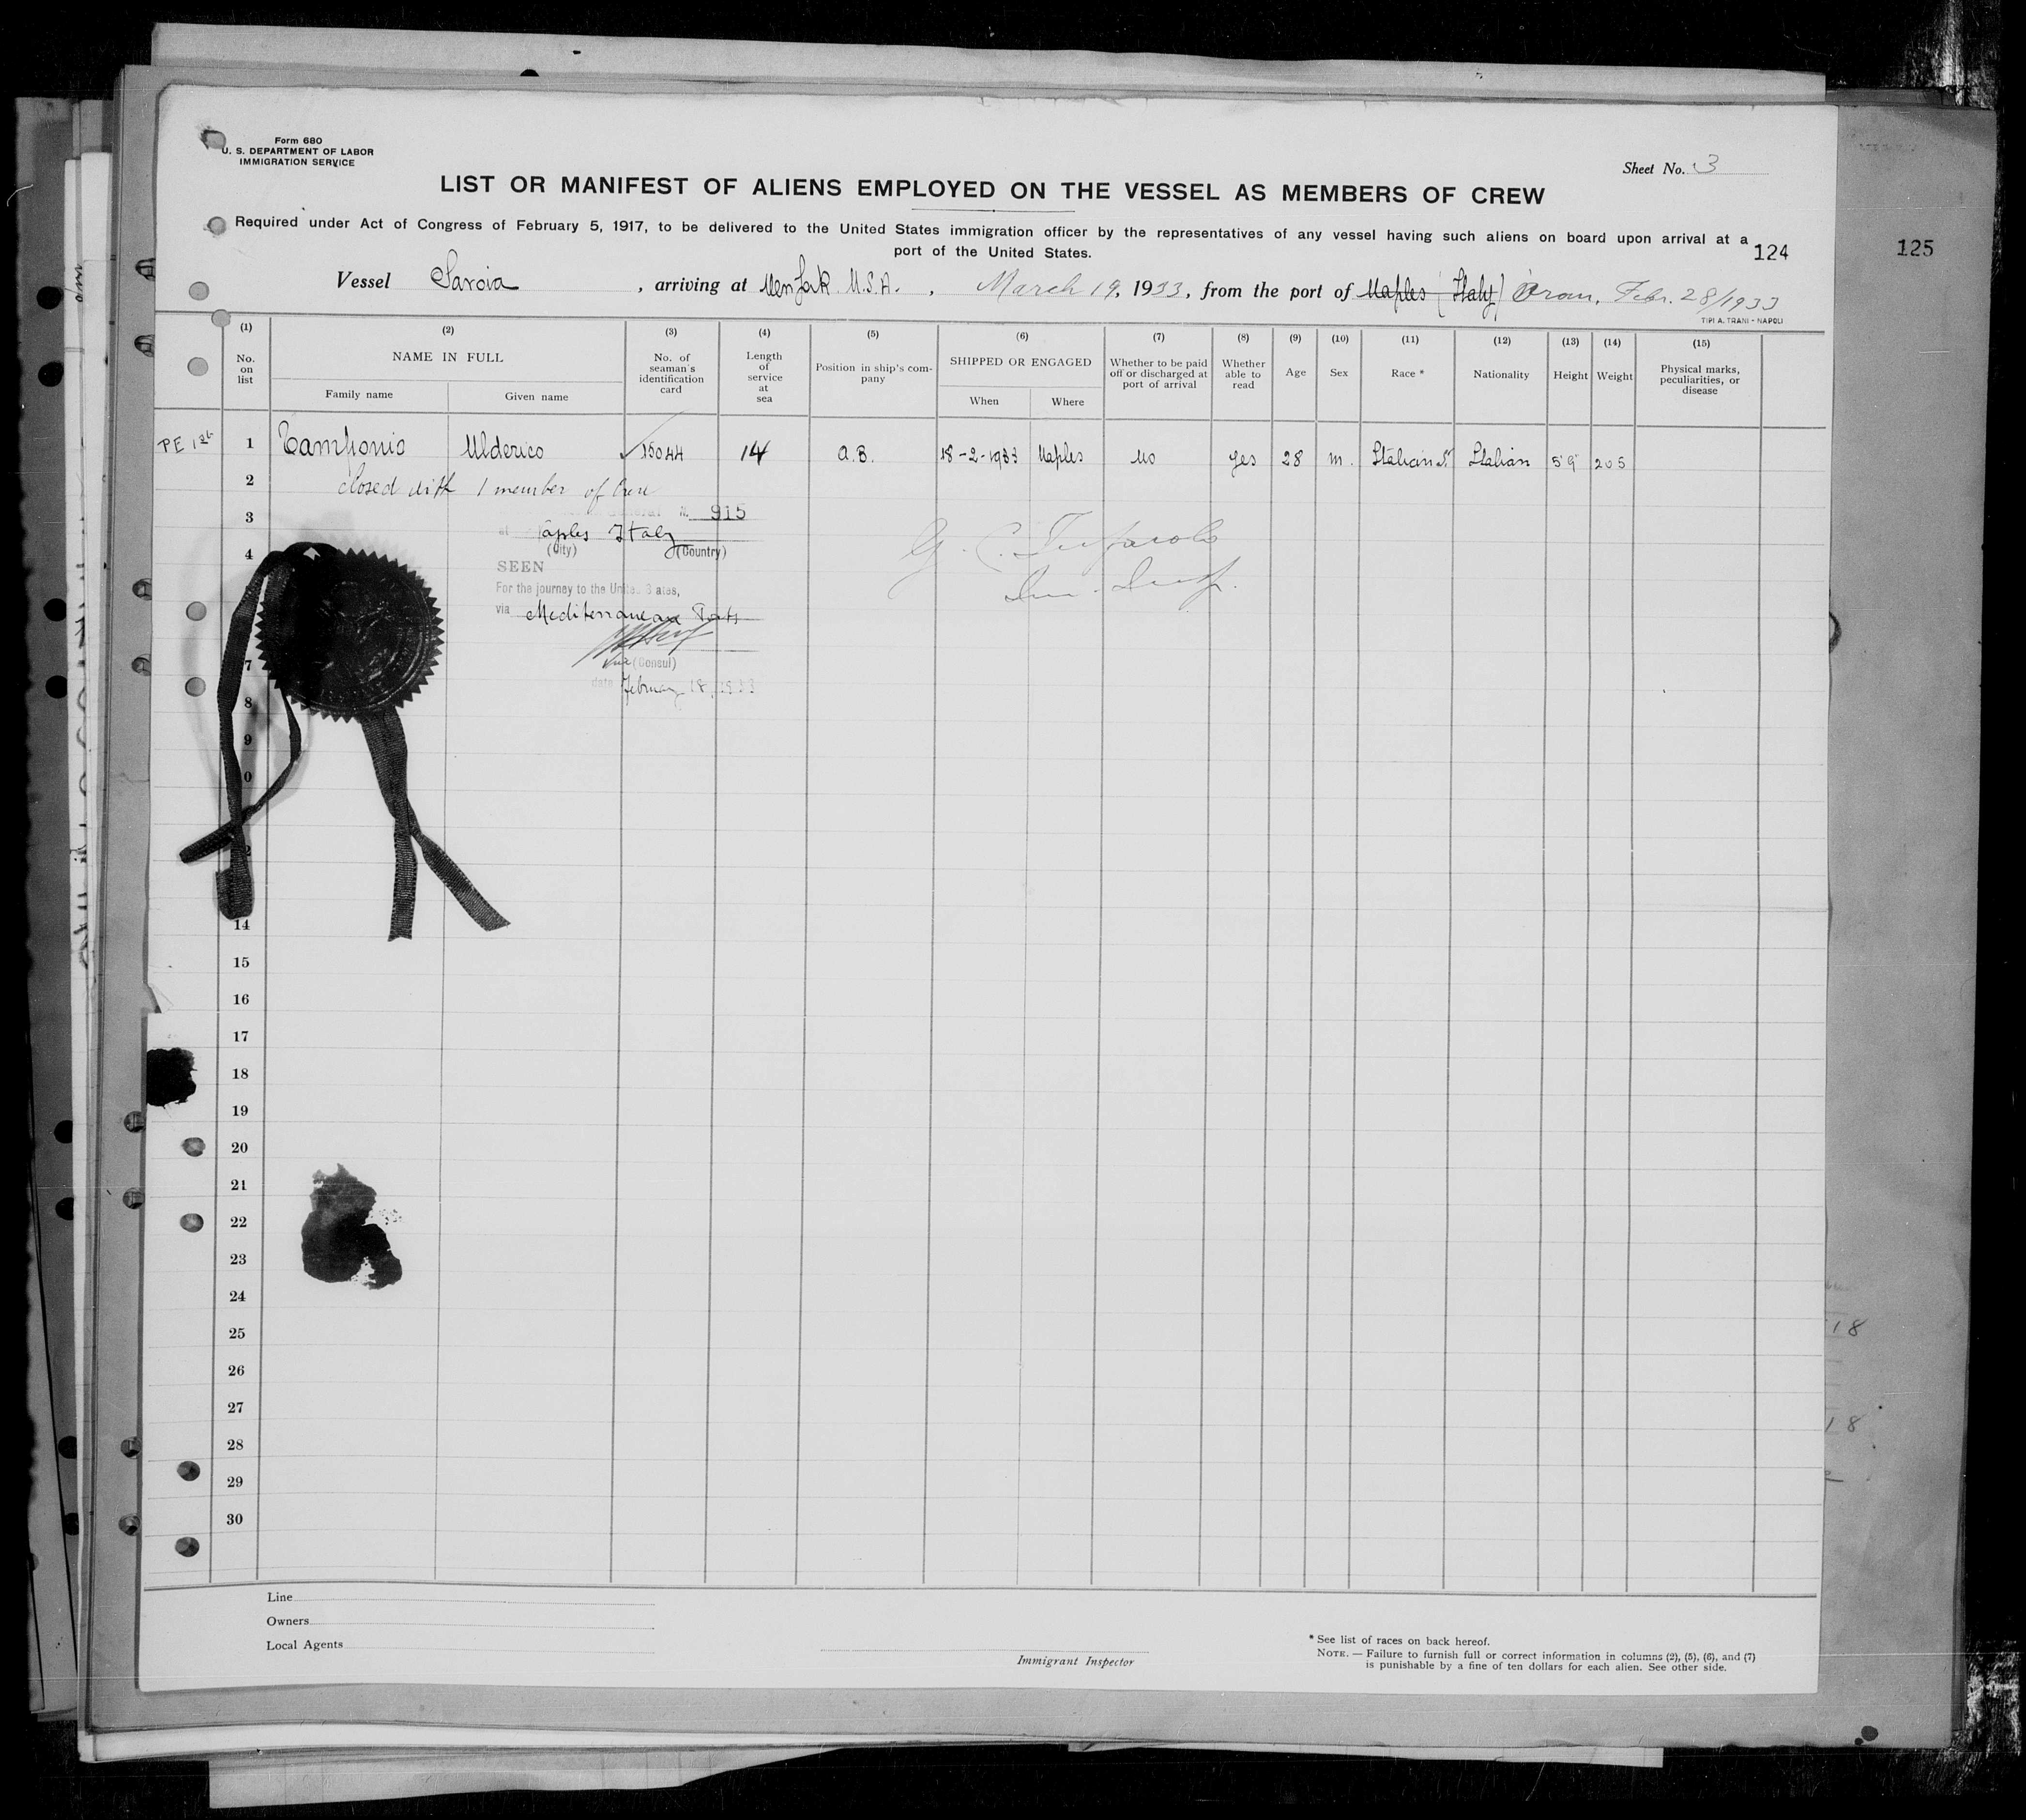 Form 680
U. S. DEPARTMENT OF LABOR
IMMIGRATION SERVICE
Sheet No. 3
LIST OR MANIFEST OF ALIENS EMPLOYED ON THE VESSEL AS MEMBERS OF CREW
Required under Act of Congress of February 5, 1917, to be delivered to the United States immigration officer by the representatives of any vessel having such aliens on board upon arrival at a
port of the United States.
124
125
Vessel Savoia, arriving at New York U.S.A., March 19, 1933, from the port of Naples (Italy) Oran, Febr. 28/1933
TIPI A. TRANI - NAPOLI
(1) (2) (3) (4) (5) (6) (7) (8) (9) (10) (11) (12) (13) (14) (15)
No. on list NAME IN FULL Family name Given name No. of seaman's identification card Length of service at sea Position in ship's company SHIPPED OR ENGAGED When Where Whether to be paid off or discharged at port of arrival Whether able to read Age Sex Race * Nationality Height Weight Physical marks, peculiarities, or disease
PE 1 1 Tamponio Ulderico 15044 14 A.B. 18-2-1933 Naples No yes 28 m. Italian S. Italian 5'9" 205
2 closed with 1 member of Crew
3 No. 915
at Naples Italy
4 (City) (Country)
SEEN
For the journey to the United States,
via Mediterranean Ports
7 Vice (Consul)
date February 18, 1933
8
9
0
2
14
15
16
17
18
19
20
21
22
23
24
25
26
27
28
29
30
Line
Owners
Local Agents
Immigrant Inspector
* See list of races on back hereof.
NOTE. — Failure to furnish full or correct information in columns (2), (5), (6), and (7)
is punishable by a fine of ten dollars for each alien. See other side.
18
18